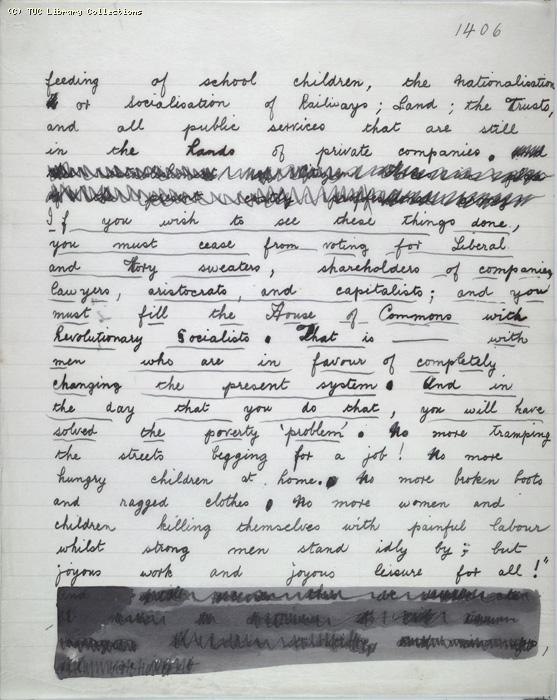 (C) TUC Library Collections
1406
feeding of school children, the nationalisation
or Socialisation of Railways; Land; the Trusts,
and all public services that are still
in the hands of private companies.
If you wish to see these things done,
you must cease from voting for Liberal
and Tory sweaters, shareholders of companies,
lawyers, aristocrats, and capitalists; and you
must fill the House of Commons with
Revolutionary Socialists. That is —— with
men who are in favour of completely
changing the present system. And in
the day that you do that, you will have
solved the poverty 'problem'. No more tramping
the streets begging for a job! No more
hungry children at home. No more broken boots
and ragged clothes. No more women and
children killing themselves with painful labour
whilst strong men stand idly by; but
joyous work and joyous leisure for all!"